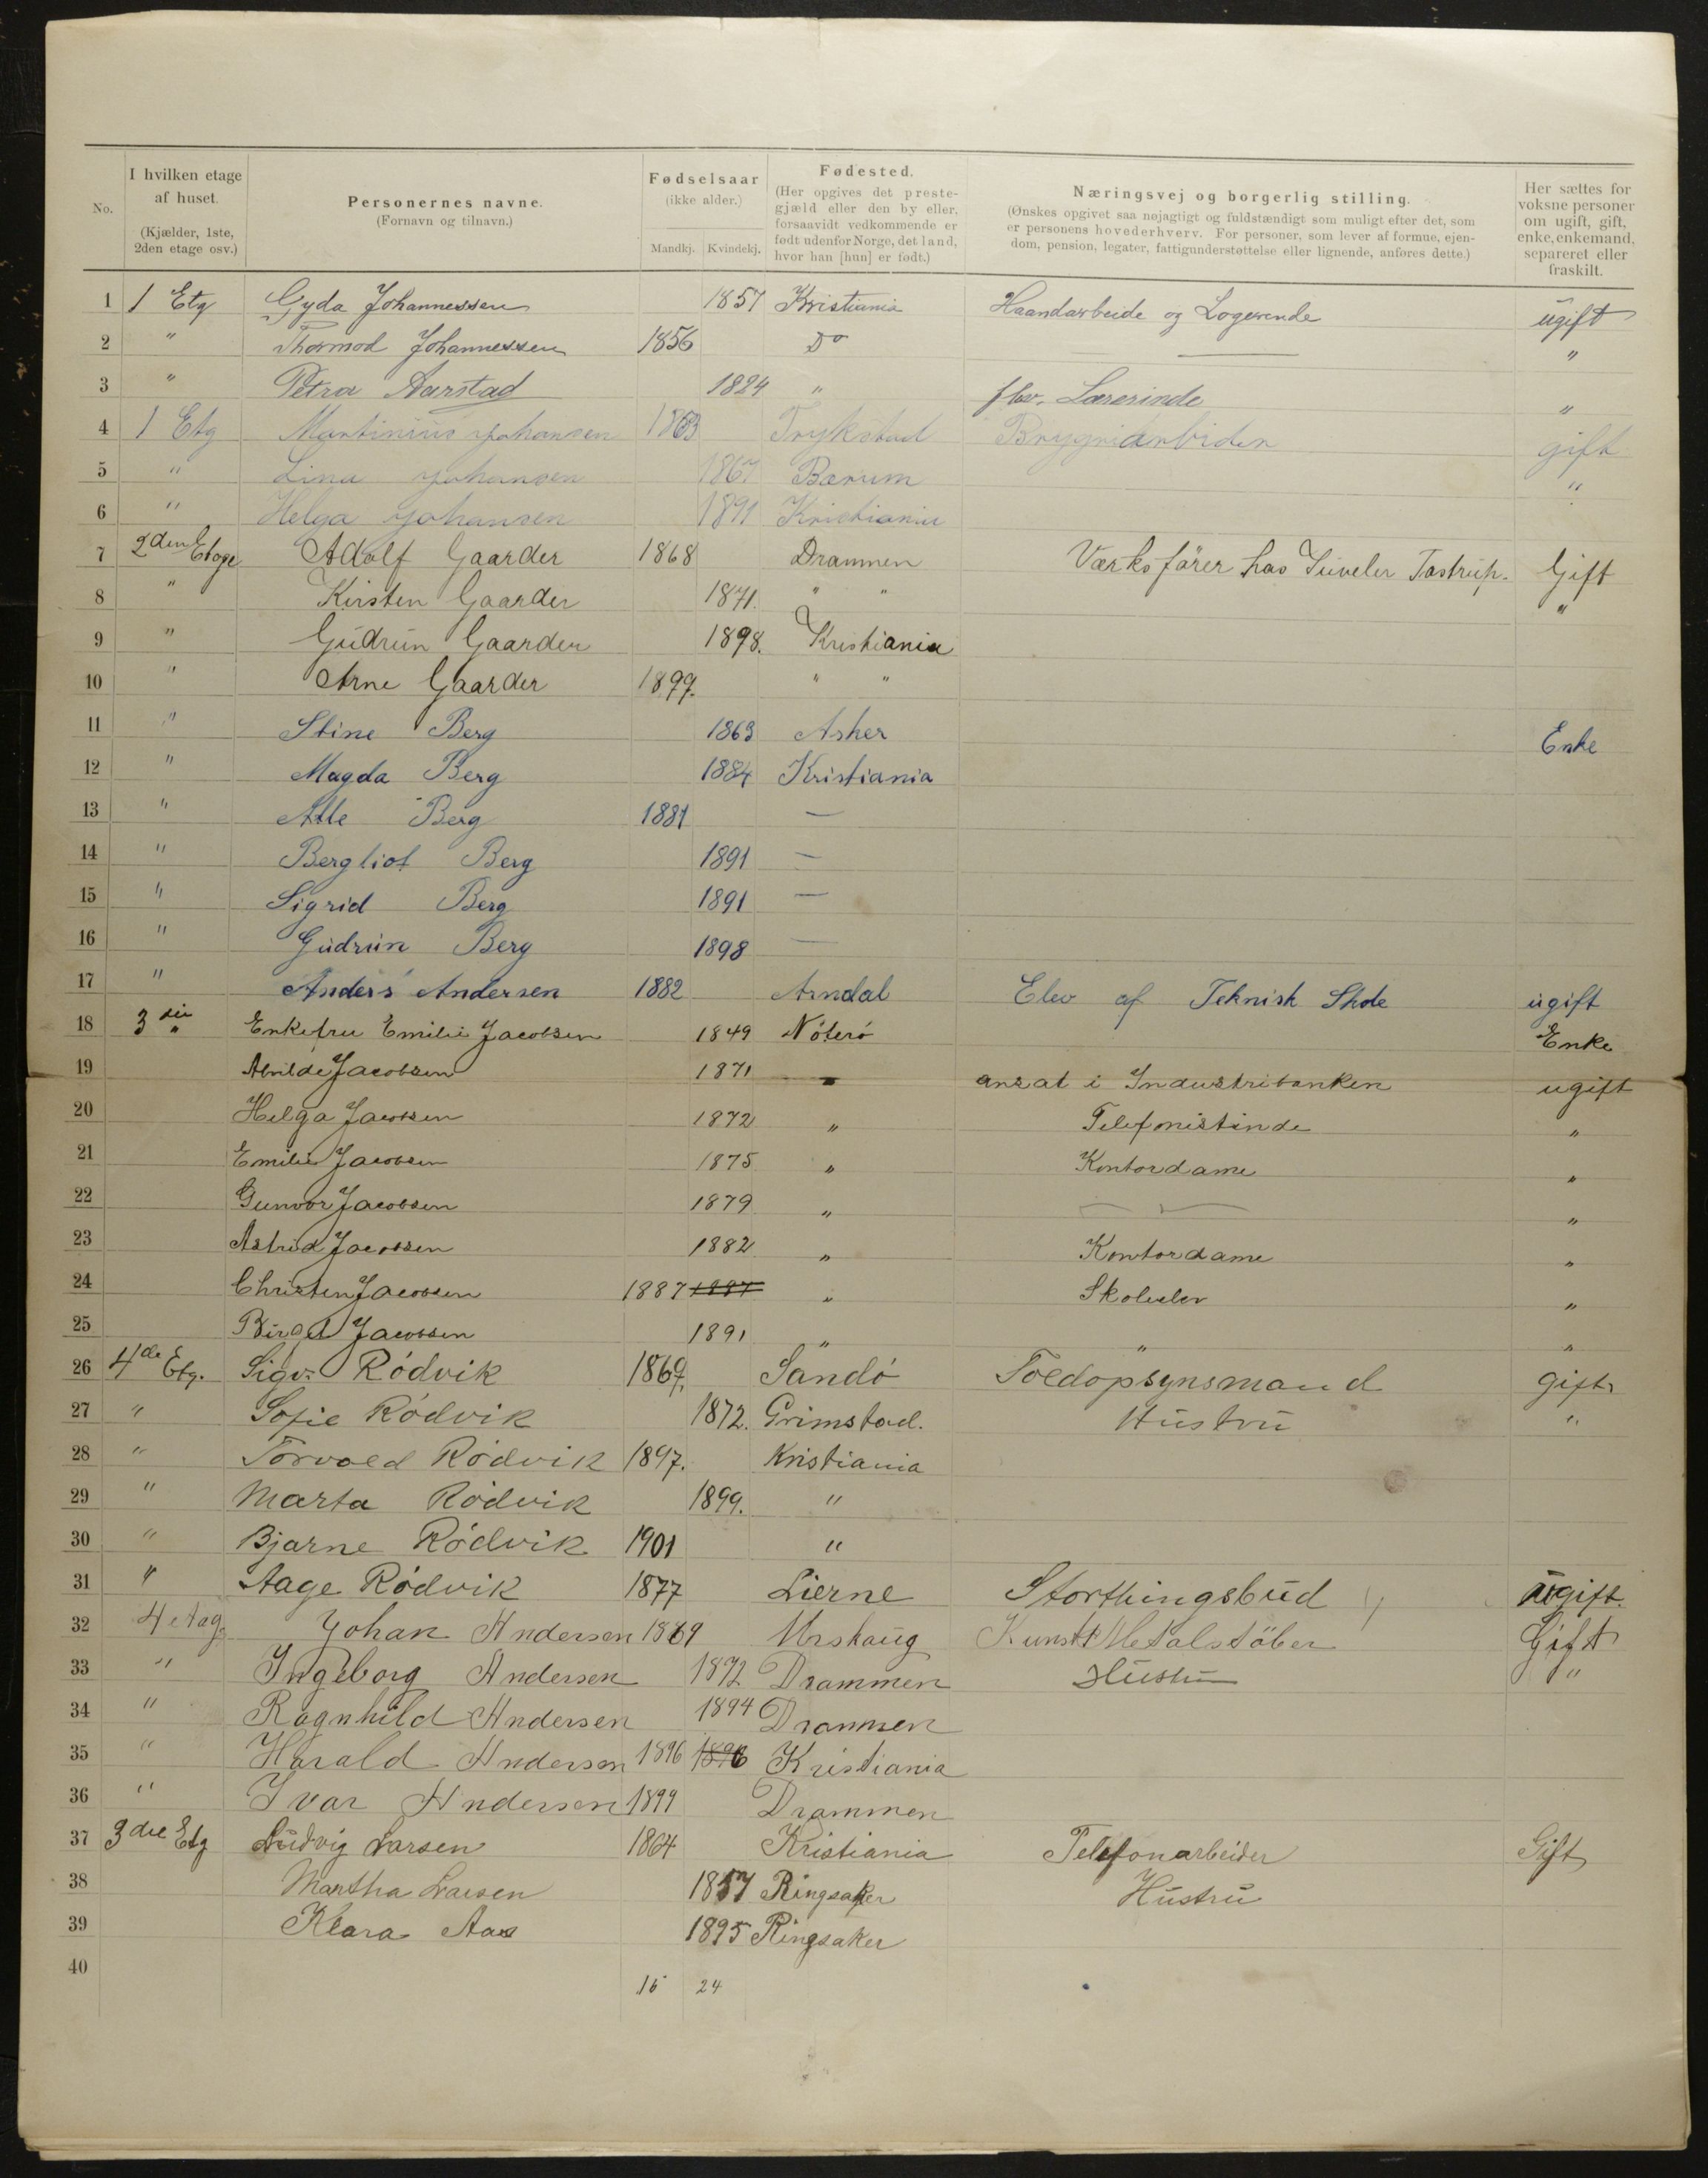 No.
I hvilken etage af huset.
(Kjælder, 1ste, 2den etage osv.)
Personernes navne.
(Fornavn og tilnavn.)
Fødselsaar
(ikke alder.)
Mandkj. Kvindekj.
Fødested.
(Her opgives det preste-
gjæld eller den by eller,
forsaavidt vedkommende er
født udenfor Norge, det land,
hvor han [hun] er født.)
Næringsvej og borgerlig stilling.
(Ønskes opgivet saa nøjagtigt og fuldstændigt som muligt efter det, som
er personens hovederhverv. For personer, som lever af formue, ejen-
dom, pension, legater, fattigunderstøttelse eller lignende, anføres dette.)
Her sættes for
voksne personer
om ugift, gift,
enke, enkemand,
separeret eller
fraskilt.
1 1 Etg Gyda Johannessen 1857 Kristiania Haandarbeide og Logerende ugift
2 " Thormod Johannessen 1856 Do — "
3 " Petra Aarstad 1824 " fhv. Lærerinde "
4 1 Etg Martinius Johansen 1863 Trykstad Bryggeriarbider gift
5 " Lina Johansen 1867 Bærum "
6 " Helga Johansen 1891 Kristiania
7 2den Etage Adolf Gaarder 1868 Drammen Værksfører hos Juveler Tostrup. Gift
8 " Kirsten Gaarder 1871. " " "
9 " Gudrun Gaarder 1898. Kristiania
10 " Arne Gaarder 1899. " "
11 " Stine Berg 1863 Asker Enke
12 " Magda Berg 1884 Kristiania
13 " Atle Berg 1881 —
14 " Bergliot Berg 1891 —
15 " Sigrid Berg 1891 —
16 " Gudrun Berg 1898 —
17 " Anders Andersen 1882 Arndal Elev af Teknisk Skole ugift
18 3die " Enkefru Emilie Jacobsen 1849 Nøterø Enke
19 Alvilde Jacobsen 1871 " ansat i Industribanken ugift
20 Helga Jacobsen 1872 " Telefonistinde "
21 Emilie Jacobsen 1875 " Kontordame "
22 Gunvor Jacobsen 1879 " — "
23 Astrid Jacobsen 1882 " Kontordame "
24 Christen Jacobsen 1887 1887 " Skoleelev "
25 Birgit Jacobsen 1891 " " "
26 4de Etg. Sigv. Rödvik 1869. Sandö Toldopsynsmand gift
27 " Sofie Rödvik 1872. Grimstad. Hustru "
28 " Torvald Rödvik 1897. Kristiania
29 " Marta Rödvik 1899. "
30 " Bjarne Rödvik 1901 "
31 " Aage Rödvik 1877 Lierne Storthingsbud ugift.
32 4 etag. Johan Andersen 1869 Urskaug Kunst Metalstöber Gift
33 " Ingeborg Andersen 1872 Drammen Hustru "
34 " Ragnhild Andersen 1894 Drammen
35 " Harald Andersen 1896 1896 Kristiania
36 " Ivar Andersen 1899 Drammen
37 3die Etg Ludvig Larsen 1864 Kristiania Telefonarbeider Gift
38 Martha Larsen 1857 Ringsaker Hustru
39 Klara Aas 1895 Ringsaker
40
15 24